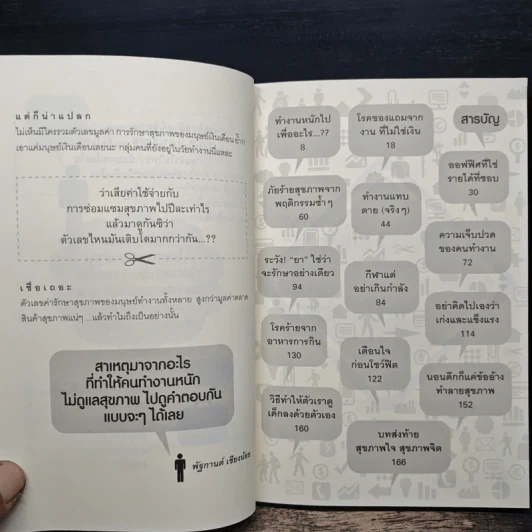 แต่ก็น่าแปลก
ไม่เห็นมีใครรวมตัวเลขมูลค่า การรักษาสุขภาพของมนุษย์เงินเดือน ย้ำ
เอาแค่มนุษย์เงินเดือนเลยนะ กลุ่มคนที่ยังอยู่ในวัยทำงานนี่แหละ
ว่าเสียค่าใช้จ่ายกับ
การซ่อมแซมสุขภาพไปปีละเท่าไร
แล้วมาดูกันซิว่า
ตัวเลขไหนมันเติบโตมากกว่ากัน...??
เชื่อเถอะ
ตัวเลขค่ารักษาสุขภาพของมนุษย์ทำงานทั้งหลาย สูงกว่ามูลค่าตลาด
สินค้าสุขภาพแน่ๆ ...แล้วทำไมถึงเป็นอย่างนั้น
สาเหตุมาจากอะไร
ที่ทำให้คนทำงานหนัก
ไม่ดูแลสุขภาพ ไปดูคำตอบกัน
แบบจะๆ ได้เลย
พัฐกานต์ เชียงน้อย
สารบัญ
ทำงานหนักไป
เพื่ออะไร...??
8
โรคของแถมจาก
งาน ที่ไม่ใช่เงิน
18
ออฟฟิศที่ใช่
รายได้ที่ชอบ
30
ทำงานแทบ
ตาย (จริงๆ)
44
ภัยร้ายสุขภาพจาก
พฤติกรรมซ้ำๆ
60
ความเจ็บปวด
ของคนทำงาน
72
กีฬาแต่
อย่าเกินกำลัง
84
ระวัง! "ยา" ใช่ว่า
จะรักษาอย่างเดียว
94
อย่าคิดไปเองว่า
เก่งและแข็งแรง
114
เตือนใจ
ก่อนโชว์ฟิต
122
โรคร้ายจาก
อาหารการกิน
130
นอนดึกก็แค่ข้ออ้าง
ทำลายสุขภาพ
152
วิธีทำให้ตัวเราดู
เด็กลงด้วยตัวเอง
160
บทส่งท้าย
สุขภาพใจ สุขภาพจิต
166